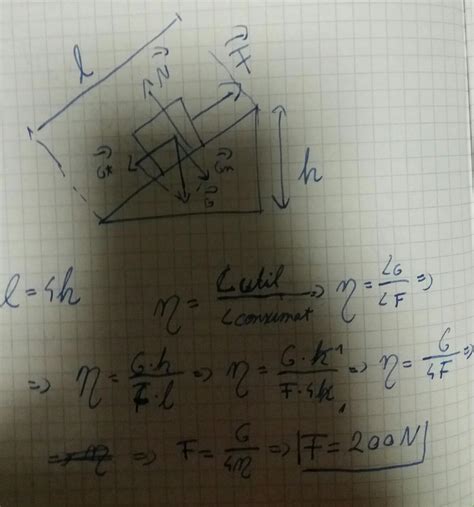 l
N⃗
F⃗
G⃗t
G⃗n
G⃗
h
l = 4h
η = L util / L consumat => η = LG / LF =>
=> η = G·h / F·l => η = G·h / F·4h => η = G / 4F =>
=> F = G / 4η => F = 200 N